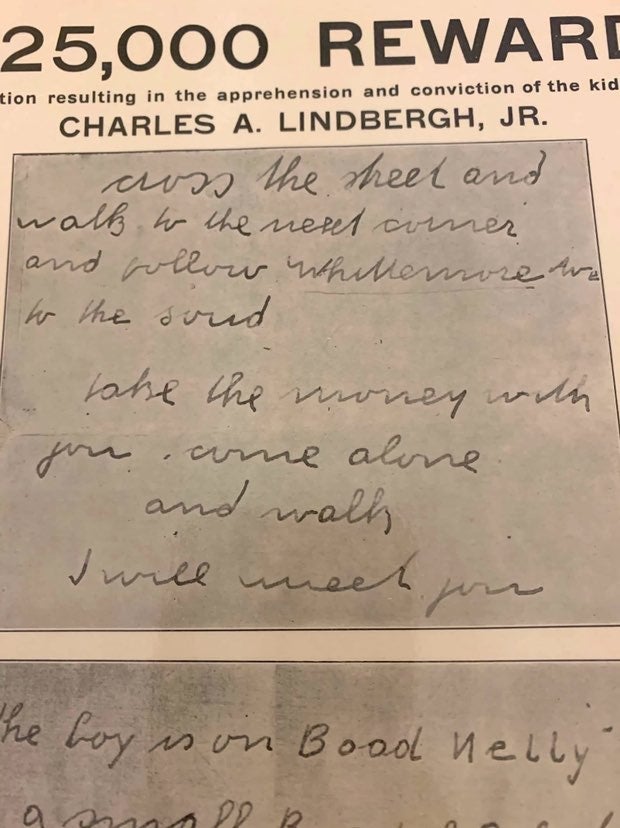 25,000 REWARD
tion resulting in the apprehension and conviction of the kid
CHARLES A. LINDBERGH, JR.
cross the street and
walk to the next corner
and follow Whittemore Ave
to the soud
take the money with
you . come alone
and walk
I will meet you
the boy is on Boad Nelly
a small